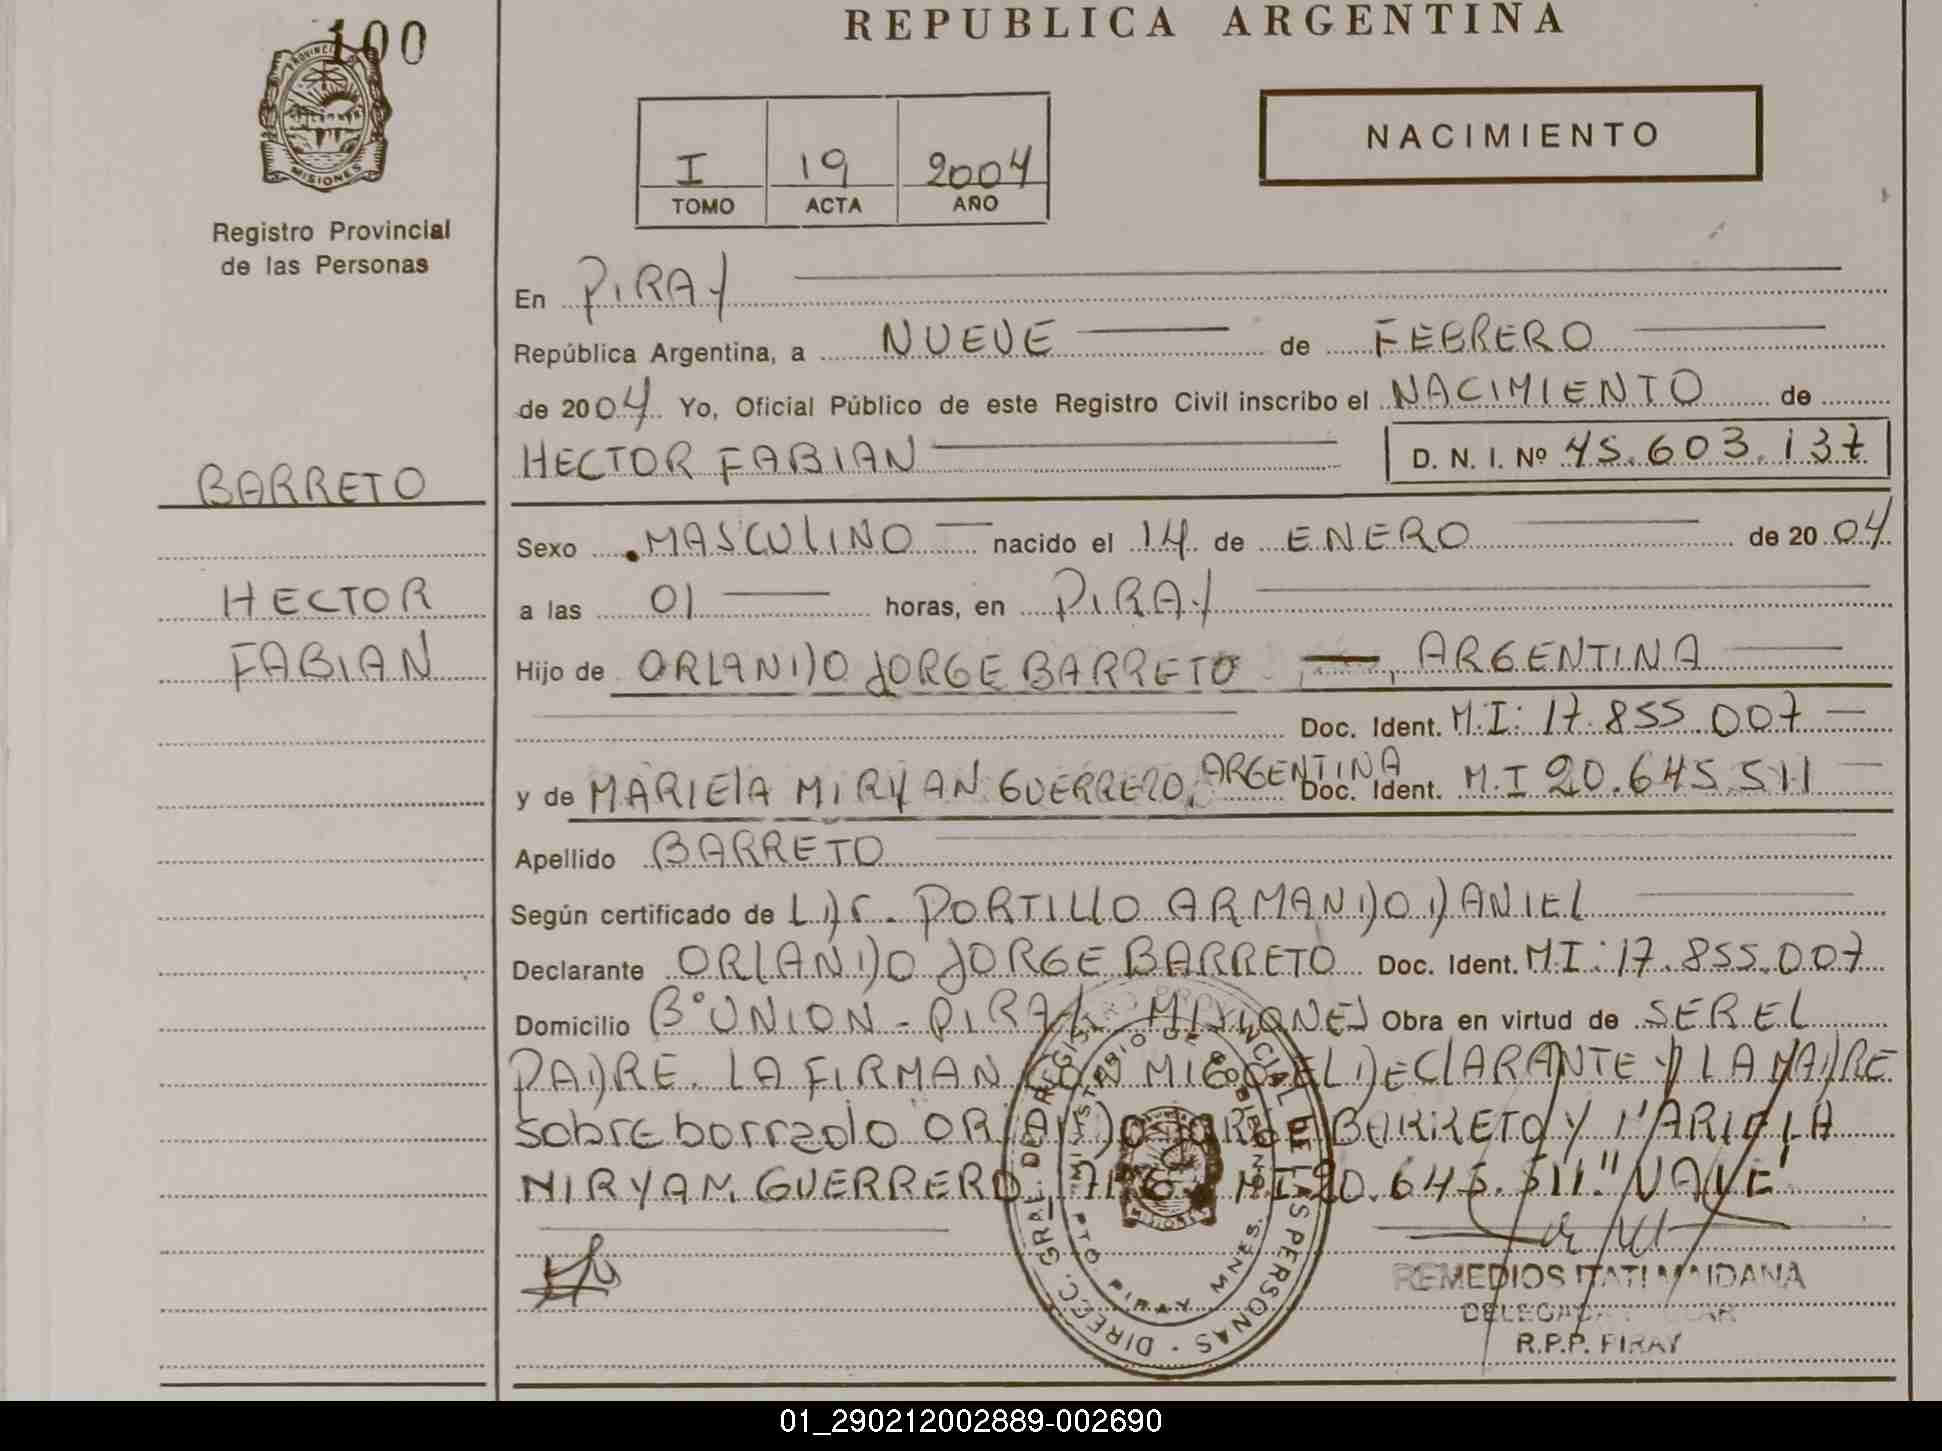 100
REPUBLICA ARGENTINA
PROVINCIA DE
MISIONES
Registro Provincial
de las Personas
I 19 2004
TOMO ACTA AÑO
NACIMIENTO
En PIRAY
República Argentina, a NUEVE de FEBRERO
de 2004 Yo, Oficial Público de este Registro Civil inscribo el NACIMIENTO de
HECTOR FABIAN D. N. I. Nº 45.603.137
BARRETO
Sexo MASCULINO nacido el 14 de ENERO de 2004
HECTOR
a las 01 horas, en PIRAY
FABIAN
Hijo de ORLANDO JORGE BARRETO, ARGENTINA
Doc. Ident. M.I: 17.855.007
y de MARIELA MIRYAN GUERRERO, ARGENTINA Doc. Ident. M.I 20.645.511
Apellido BARRETO
Según certificado de PORTILLO ARMANDO DANIEL
Declarante ORLANDO JORGE BARRETO Doc. Ident. MI: 17.855.007
Domicilio Bº UNION - PIRAY MISIONES Obra en virtud de SER EL
PADRE. LA FIRMAN CONMIGO EL DECLARANTE Y LA MADRE
sobre borrado ORLANDO JORGE BARRETO Y MARIELA
MIRYAM GUERRERO MI 20.645.511." VALE
DIREC. GRAL. DE REGISTRO PROVINCIAL DE LAS PERSONAS
MINISTERIO DE GOBIERNO
PTO PIRAY MNES.
MISIONES
REMEDIOS ITATI MAIDANA
R.P.P. PIRAY
01_290212002889-002690